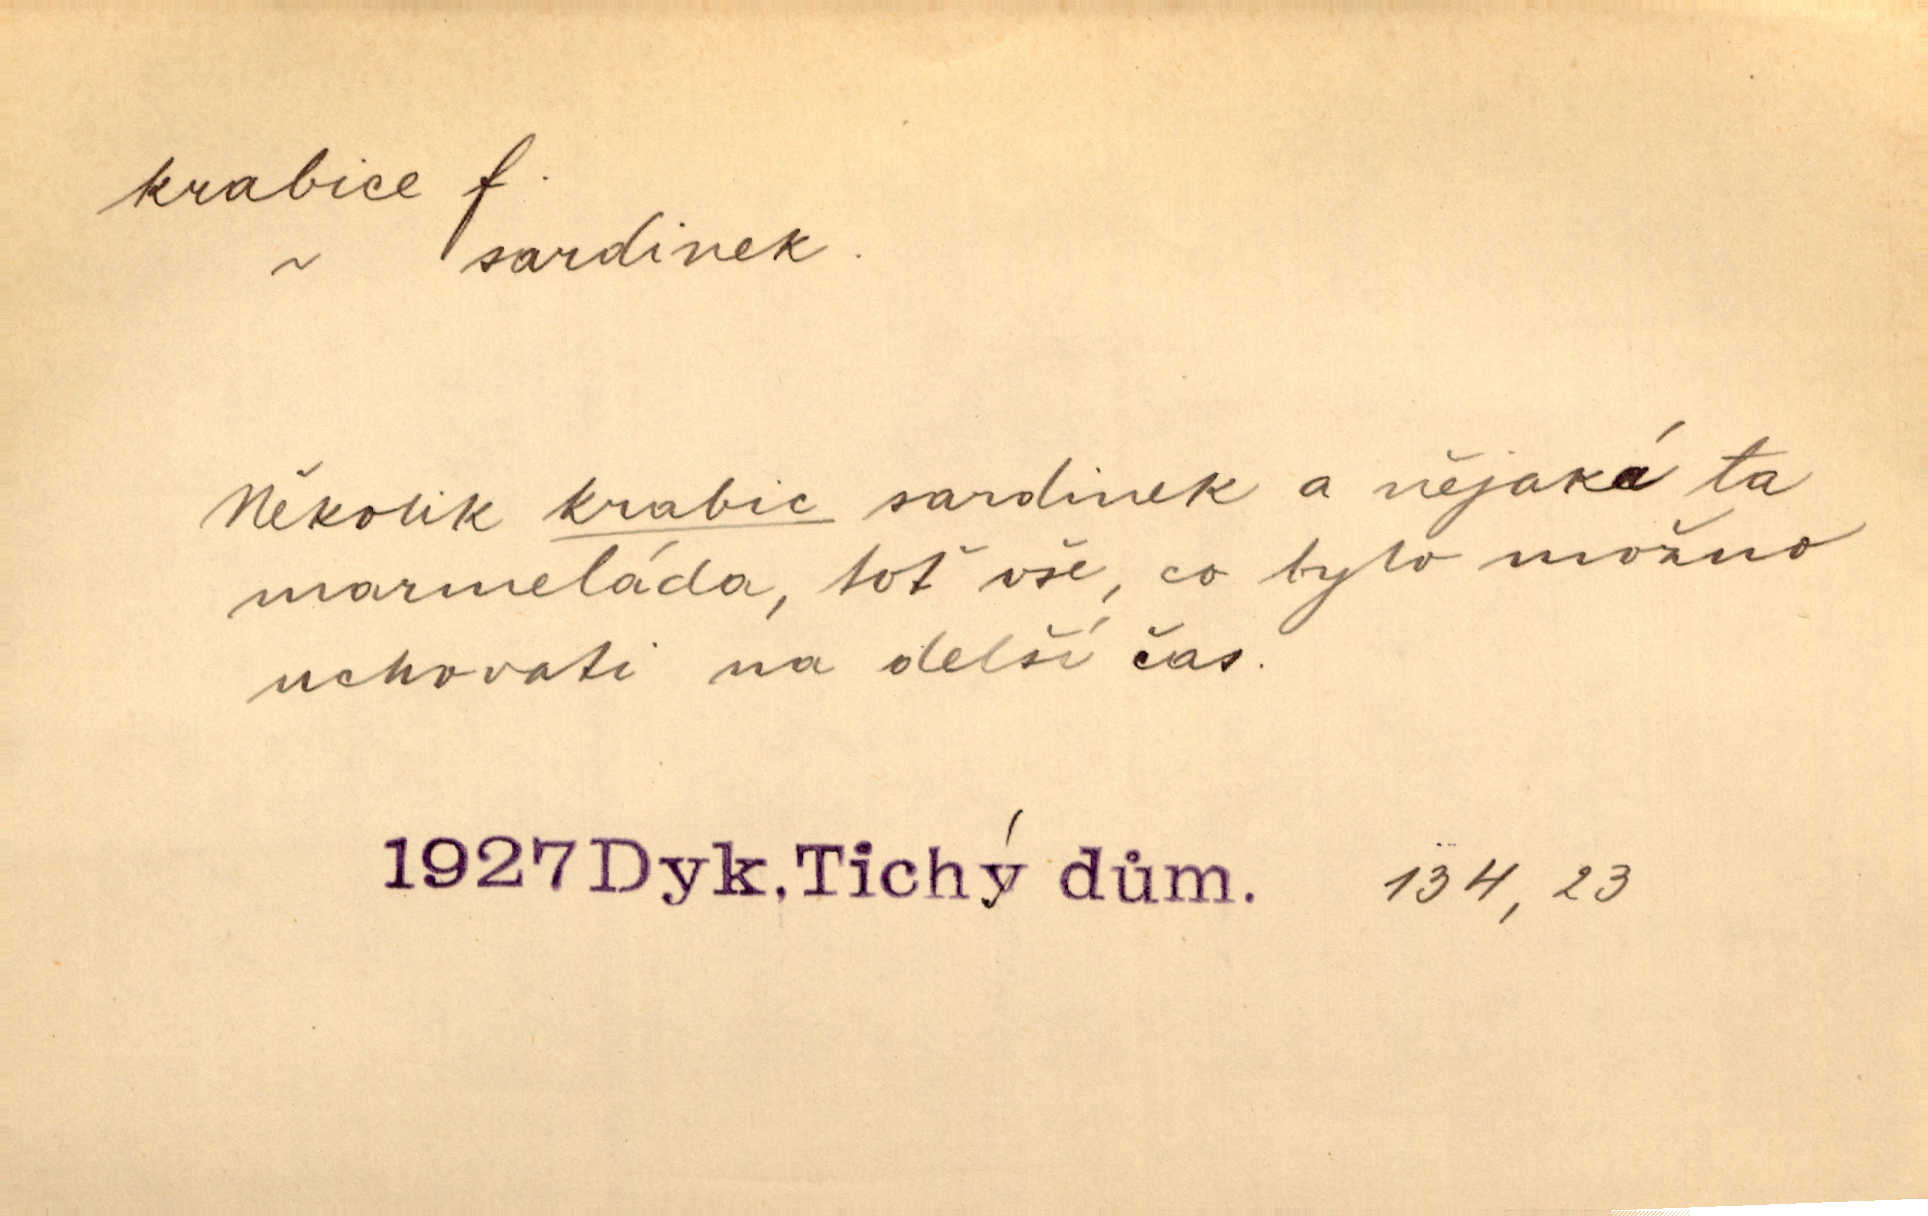 krabice f.
~ sardinek.
Několik krabic sardinek a nějaká ta
marmeláda, toť vše, co bylo možno
uchovati na delší čas.
1927 Dyk, Tichý dům. 134, 23